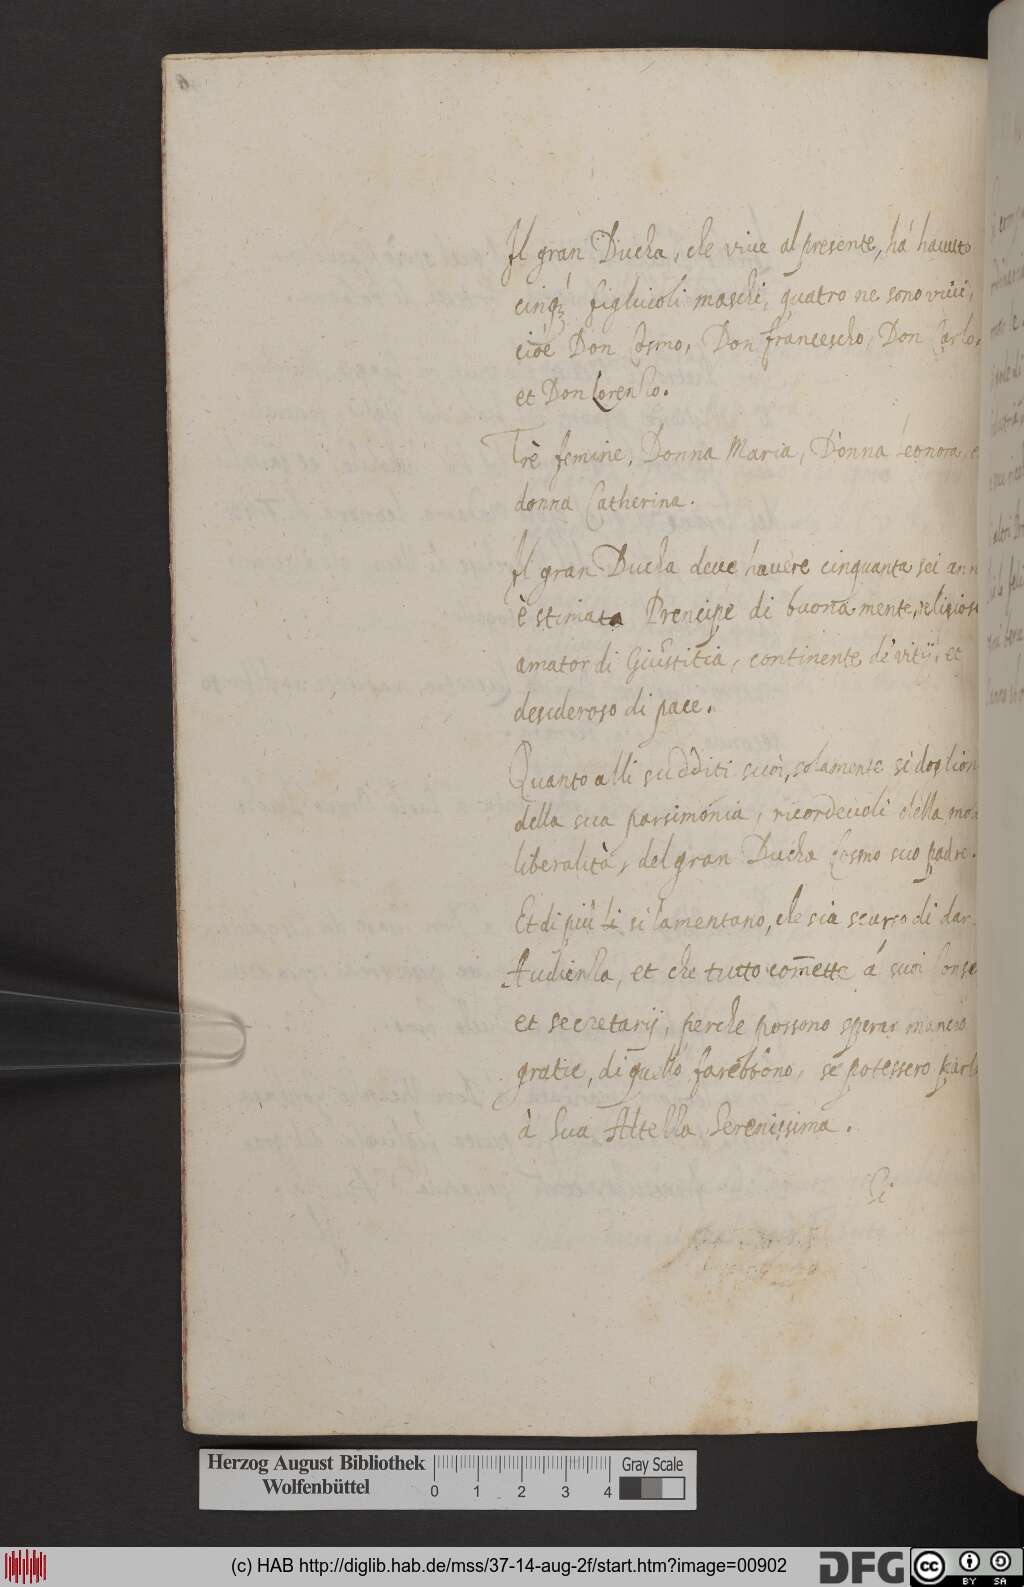 6
Il gran Ducha, che viue al presente, há hauuto
cinqȝ figliuoli maschi, quatro ne sono viui,
cioé Don Cosmo, Don francescho, Don Carlo,
et Don Lorenzo.
Trè femine, Donna Maria, Donna Leonora, e
donna Catherina.
Il gran Ducha deue hauere cinquanta sei ann
è stimata Prencipe di buona mente, religios
amator di Giustitia, continente de' vitij, et
desideroso di pace.
Quanto alli sudditi suoi, solamente si doglion
della sua parsimonia, ricordeuoli della mol
liberalità, del gran Ducha Cosmo suo padre.
Et di più si lamentano, che sia scarso di dar
Audienza, et che tutto com̄ette á suoi Conse
et secretarij, perche possono sperar manco
gratie, di quello farebbono, se potessero parla
à Sua Altezza Serenissima.
Si
Herzog August Bibliothek
Wolfenbüttel
0 1 2 3 4
Gray Scale
(c) HAB http://diglib.hab.de/mss/37-14-aug-2f/start.htm?image=00902
DFG
cc BY SA